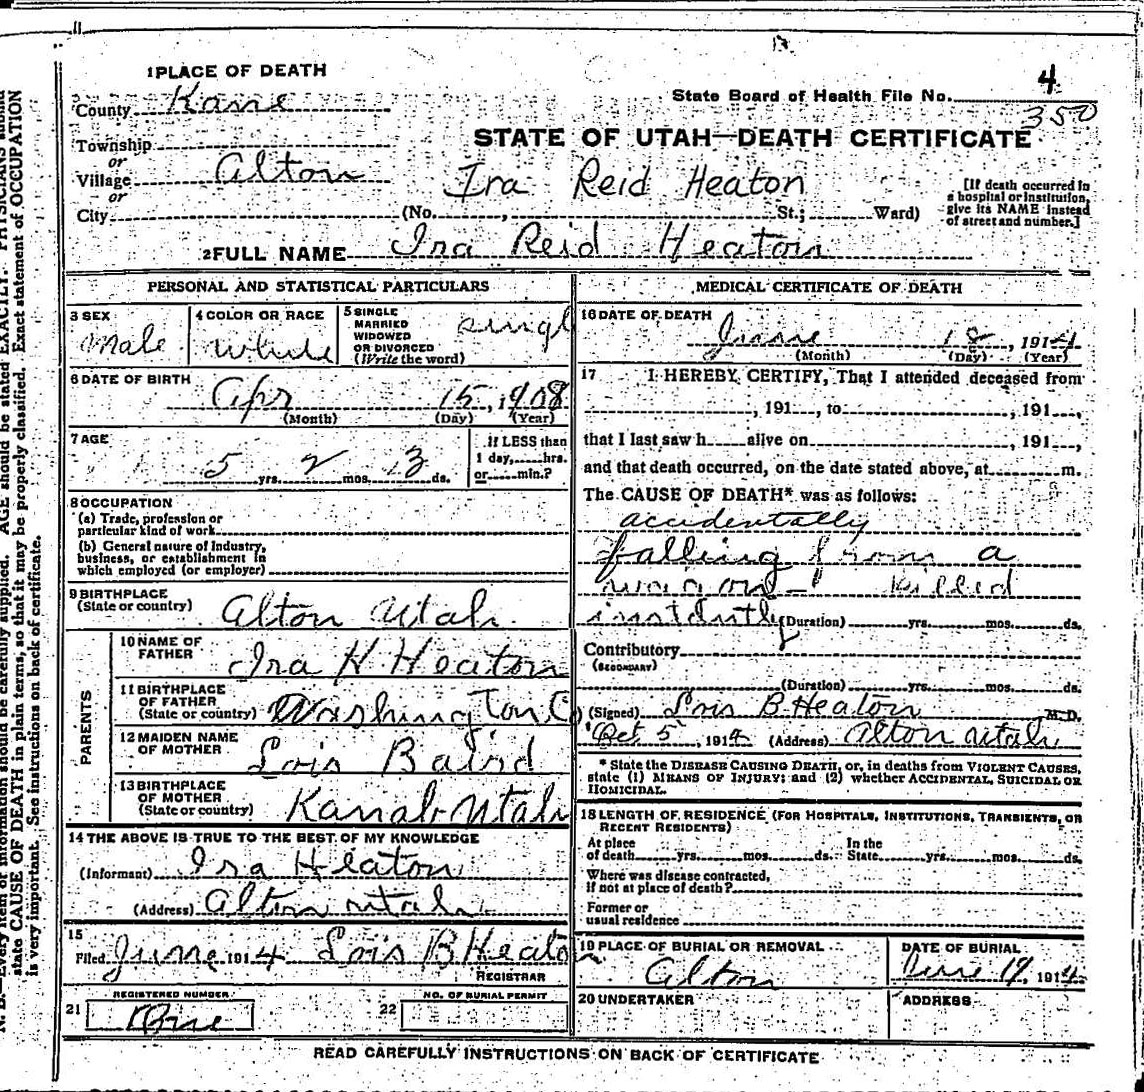 1 PLACE OF DEATH
County Kane
State Board of Health File No. 4
350
STATE OF UTAH—DEATH CERTIFICATE
Township
or
Village Alton
or
Ira Reid Heaton
City (No. , St.; Ward)
[If death occurred in
a hospital or institution,
give its NAME instead
of street and number.]
2 FULL NAME Ira Reid Heaton
PERSONAL AND STATISTICAL PARTICULARS
3 SEX
Male
4 COLOR OR RACE
White
5 SINGLE
MARRIED
WIDOWED
OR DIVORCED
(Write the word)
singl
6 DATE OF BIRTH
Apr 15, 1908
(Month) (Day) (Year)
7 AGE
5 yrs. 2 mos. 3 ds.
if LESS than
1 day, hrs.
or min.?
8 OCCUPATION
(a) Trade, profession or
particular kind of work
(b) General nature of industry,
business, or establishment in
which employed (or employer)
9 BIRTHPLACE
(State or country) Alton Utah
PARENTS
10 NAME OF
FATHER Ira H Heaton
11 BIRTHPLACE
OF FATHER
(State or country) Washington C
12 MAIDEN NAME
OF MOTHER Lois Baird
13 BIRTHPLACE
OF MOTHER
(State or country) Kanab Utah
14 THE ABOVE IS TRUE TO THE BEST OF MY KNOWLEDGE
(Informant) Ira Heaton
(Address) Alton Utah
15
Filed June 1914 Lois B Heaton
REGISTRAR
21 REGISTERED NUMBER
One
22 NO. OF BURIAL PERMIT
MEDICAL CERTIFICATE OF DEATH
16 DATE OF DEATH
June 18, 1914
(Month) (Day) (Year)
17 I HEREBY CERTIFY, That I attended deceased from
, 191 , to , 191 ,
that I last saw h alive on , 191 ,
and that death occurred, on the date stated above, at m.
The CAUSE OF DEATH* was as follows:
accidentally
falling from a
wagon - killed
instantly (Duration) yrs. mos. ds.
Contributory
(SECONDARY)
(Duration) yrs. mos. ds.
(Signed) Lois B Heaton M. D.
Oct 5, 1914 (Address) Alton Utah
* State the DISEASE CAUSING DEATH, or, in deaths from VIOLENT CAUSES,
state (1) MEANS OF INJURY; and (2) whether ACCIDENTAL, SUICIDAL OR
HOMICIDAL.
18 LENGTH OF RESIDENCE (FOR HOSPITALS, INSTITUTIONS, TRANSIENTS, OR
RECENT RESIDENTS)
At place
of death yrs. mos. ds.
In the
State yrs. mos. ds.
Where was disease contracted,
if not at place of death?
Former or
usual residence
19 PLACE OF BURIAL OR REMOVAL
Alton
DATE OF BURIAL
June 19, 1914
20 UNDERTAKER
ADDRESS
READ CAREFULLY INSTRUCTIONS ON BACK OF CERTIFICATE
N. B.—Every item of information should be carefully supplied. AGE should be stated EXACTLY. PHYSICIANS should
state CAUSE OF DEATH in plain terms, so that it may be properly classified. Exact statement of OCCUPATION
is very important. See instructions on back of certificate.